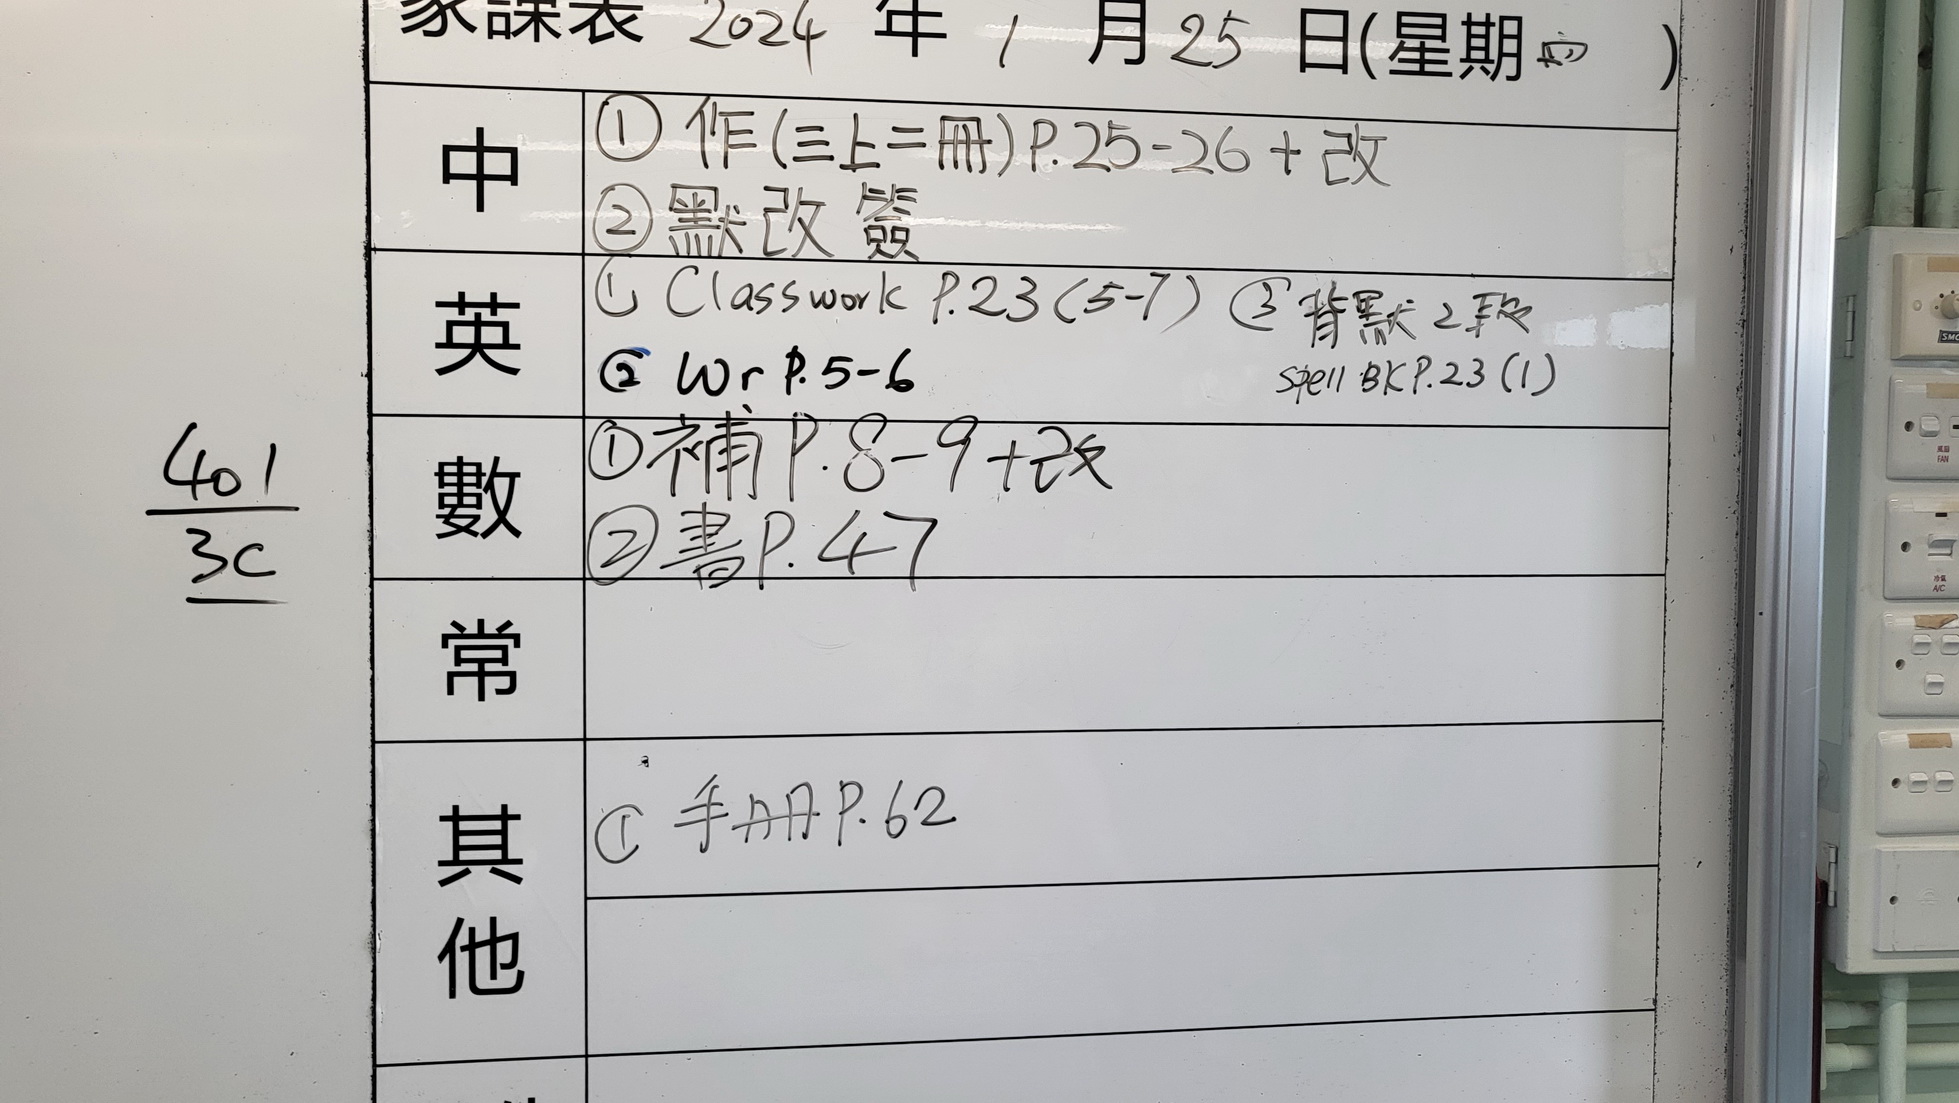 家課表 2024 年 1 月 25 日(星期四)
中
① 作(三上二冊)P.25-26 + 改
② 默改簽
英
① Classwork P.23 (5-7) ③ 背默 2 段
② Wr P.5-6 Spell BK P.23 (1)
數
① 補 P.8-9 + 改
② 書 P.47
401
3C
常
其他
① 手冊 P.62
FAN
A/C